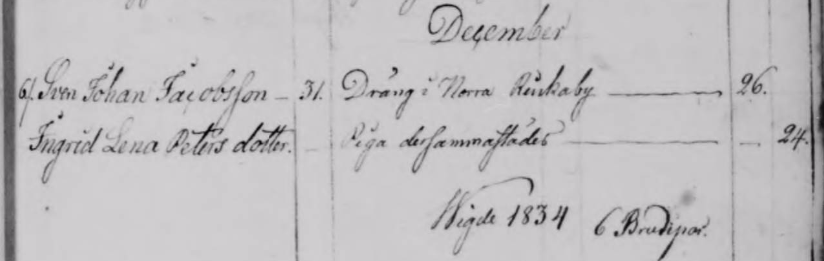 December
6/. Sven Johan Jacobsson – 31. Dräng i Norra Rinkaby — 26.
Ingrid Lena Peters dotter. – Piga dersammastädes — – 24.
Wigde 1834 6 Brudepar.